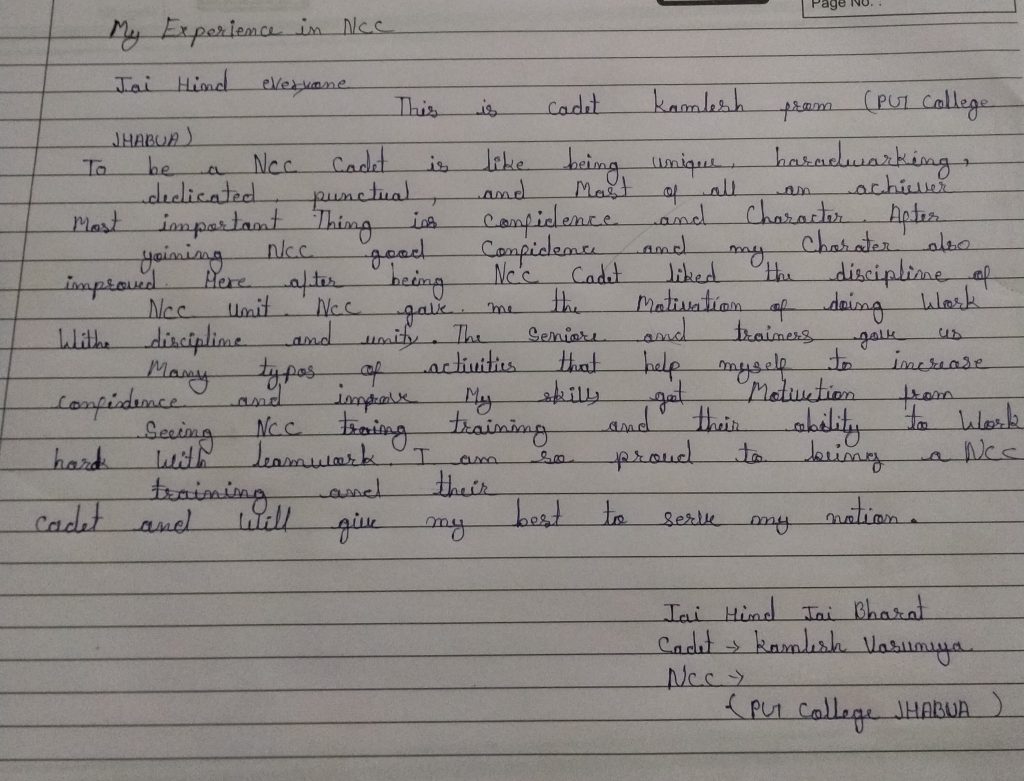 Page No. :
My Experience in NCC
Jai Hind everyone
This is cadet Kamlesh from (PG College
JHABUA)
To be a NCC Cadet is like being unique, haradwarking,
dedicated, punctual, and Mast of all an achiever
Mast important Thing is Confidence and Character. After
yoining NCC good Confidence and my Charater also
improved. Here after being NCC Cadet liked the discipline of
NCC Unit. NCC gave me the Motivation of doing Work
Withe discipline and unity. The Seniors and trainers gave us
Many typos of activities that help myself to increase
Confindence and improve My skills got Motivction from
Seeing NCC traing training and their ability to Work
hard With teamwork. I am so proud to being a NCC
training and their
Cadet and Will give my best to serve my nation.
Jai Hind Jai Bharat
Cadet → Kamlesh Vasuniya
NCC →
(PG College JHABUA)